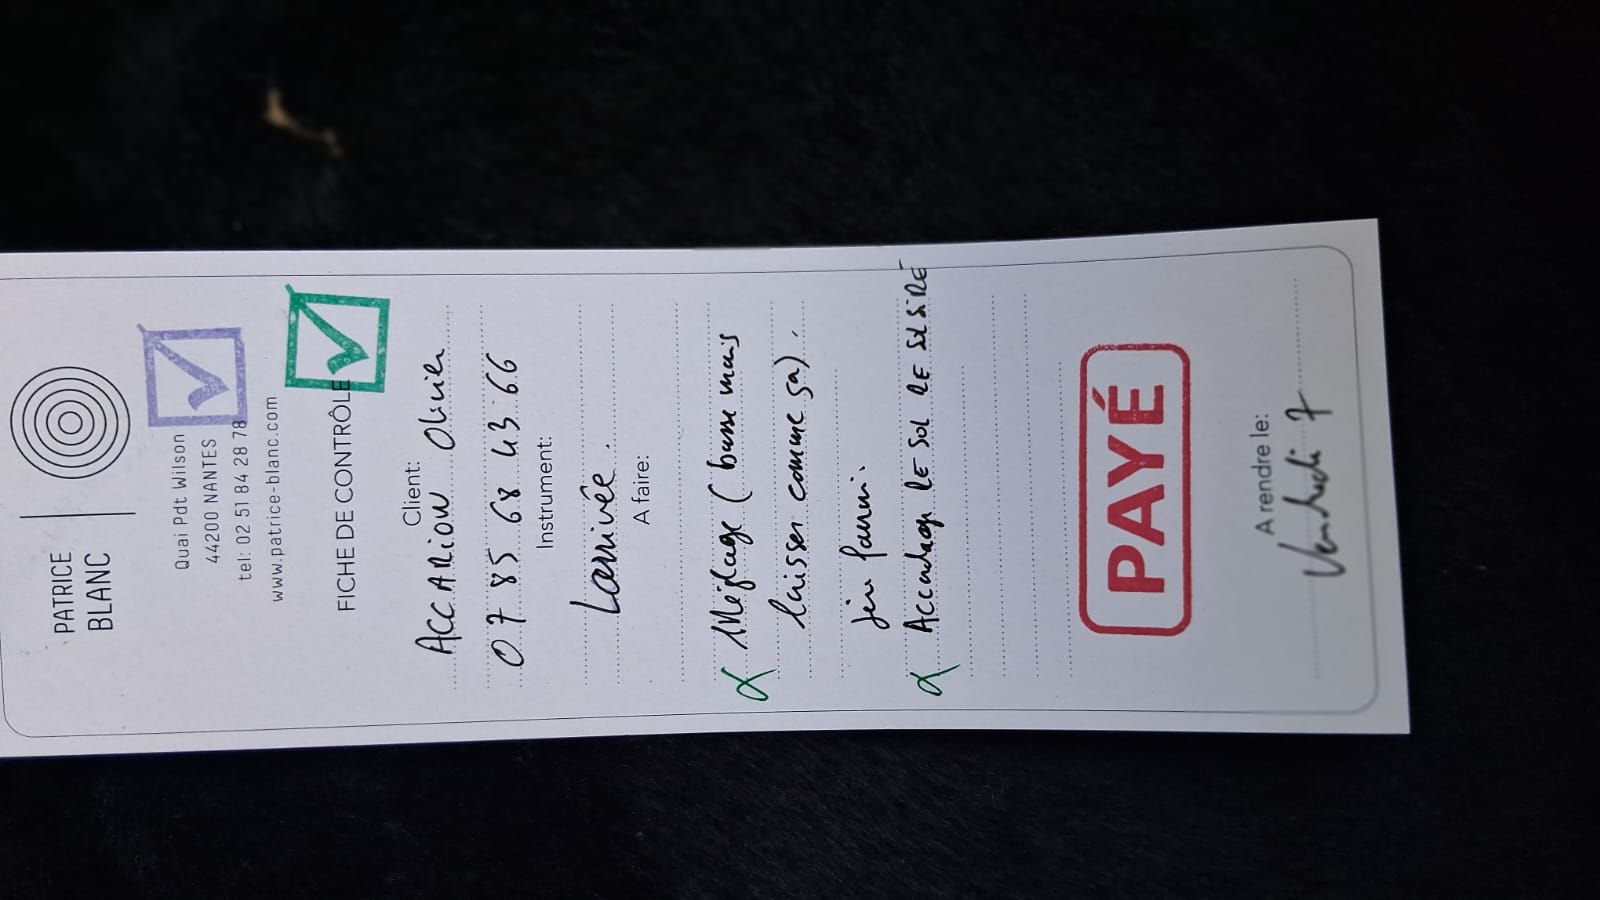 PATRICE
BLANC
Quai Pdt Wilson
44200 NANTES
tel: 02 51 84 28 78
www.patrice-blanc.com
FICHE DE CONTRÔLE
Client:
ACCARION Olivier
07 85 68 43 66
Instrument:
Larrivée.
A faire:
Réglage (basse mais
laisser comme ça).
Accordage LE SOL RE SI RE
PAYÉ
A rendre le:
Vendredi 7